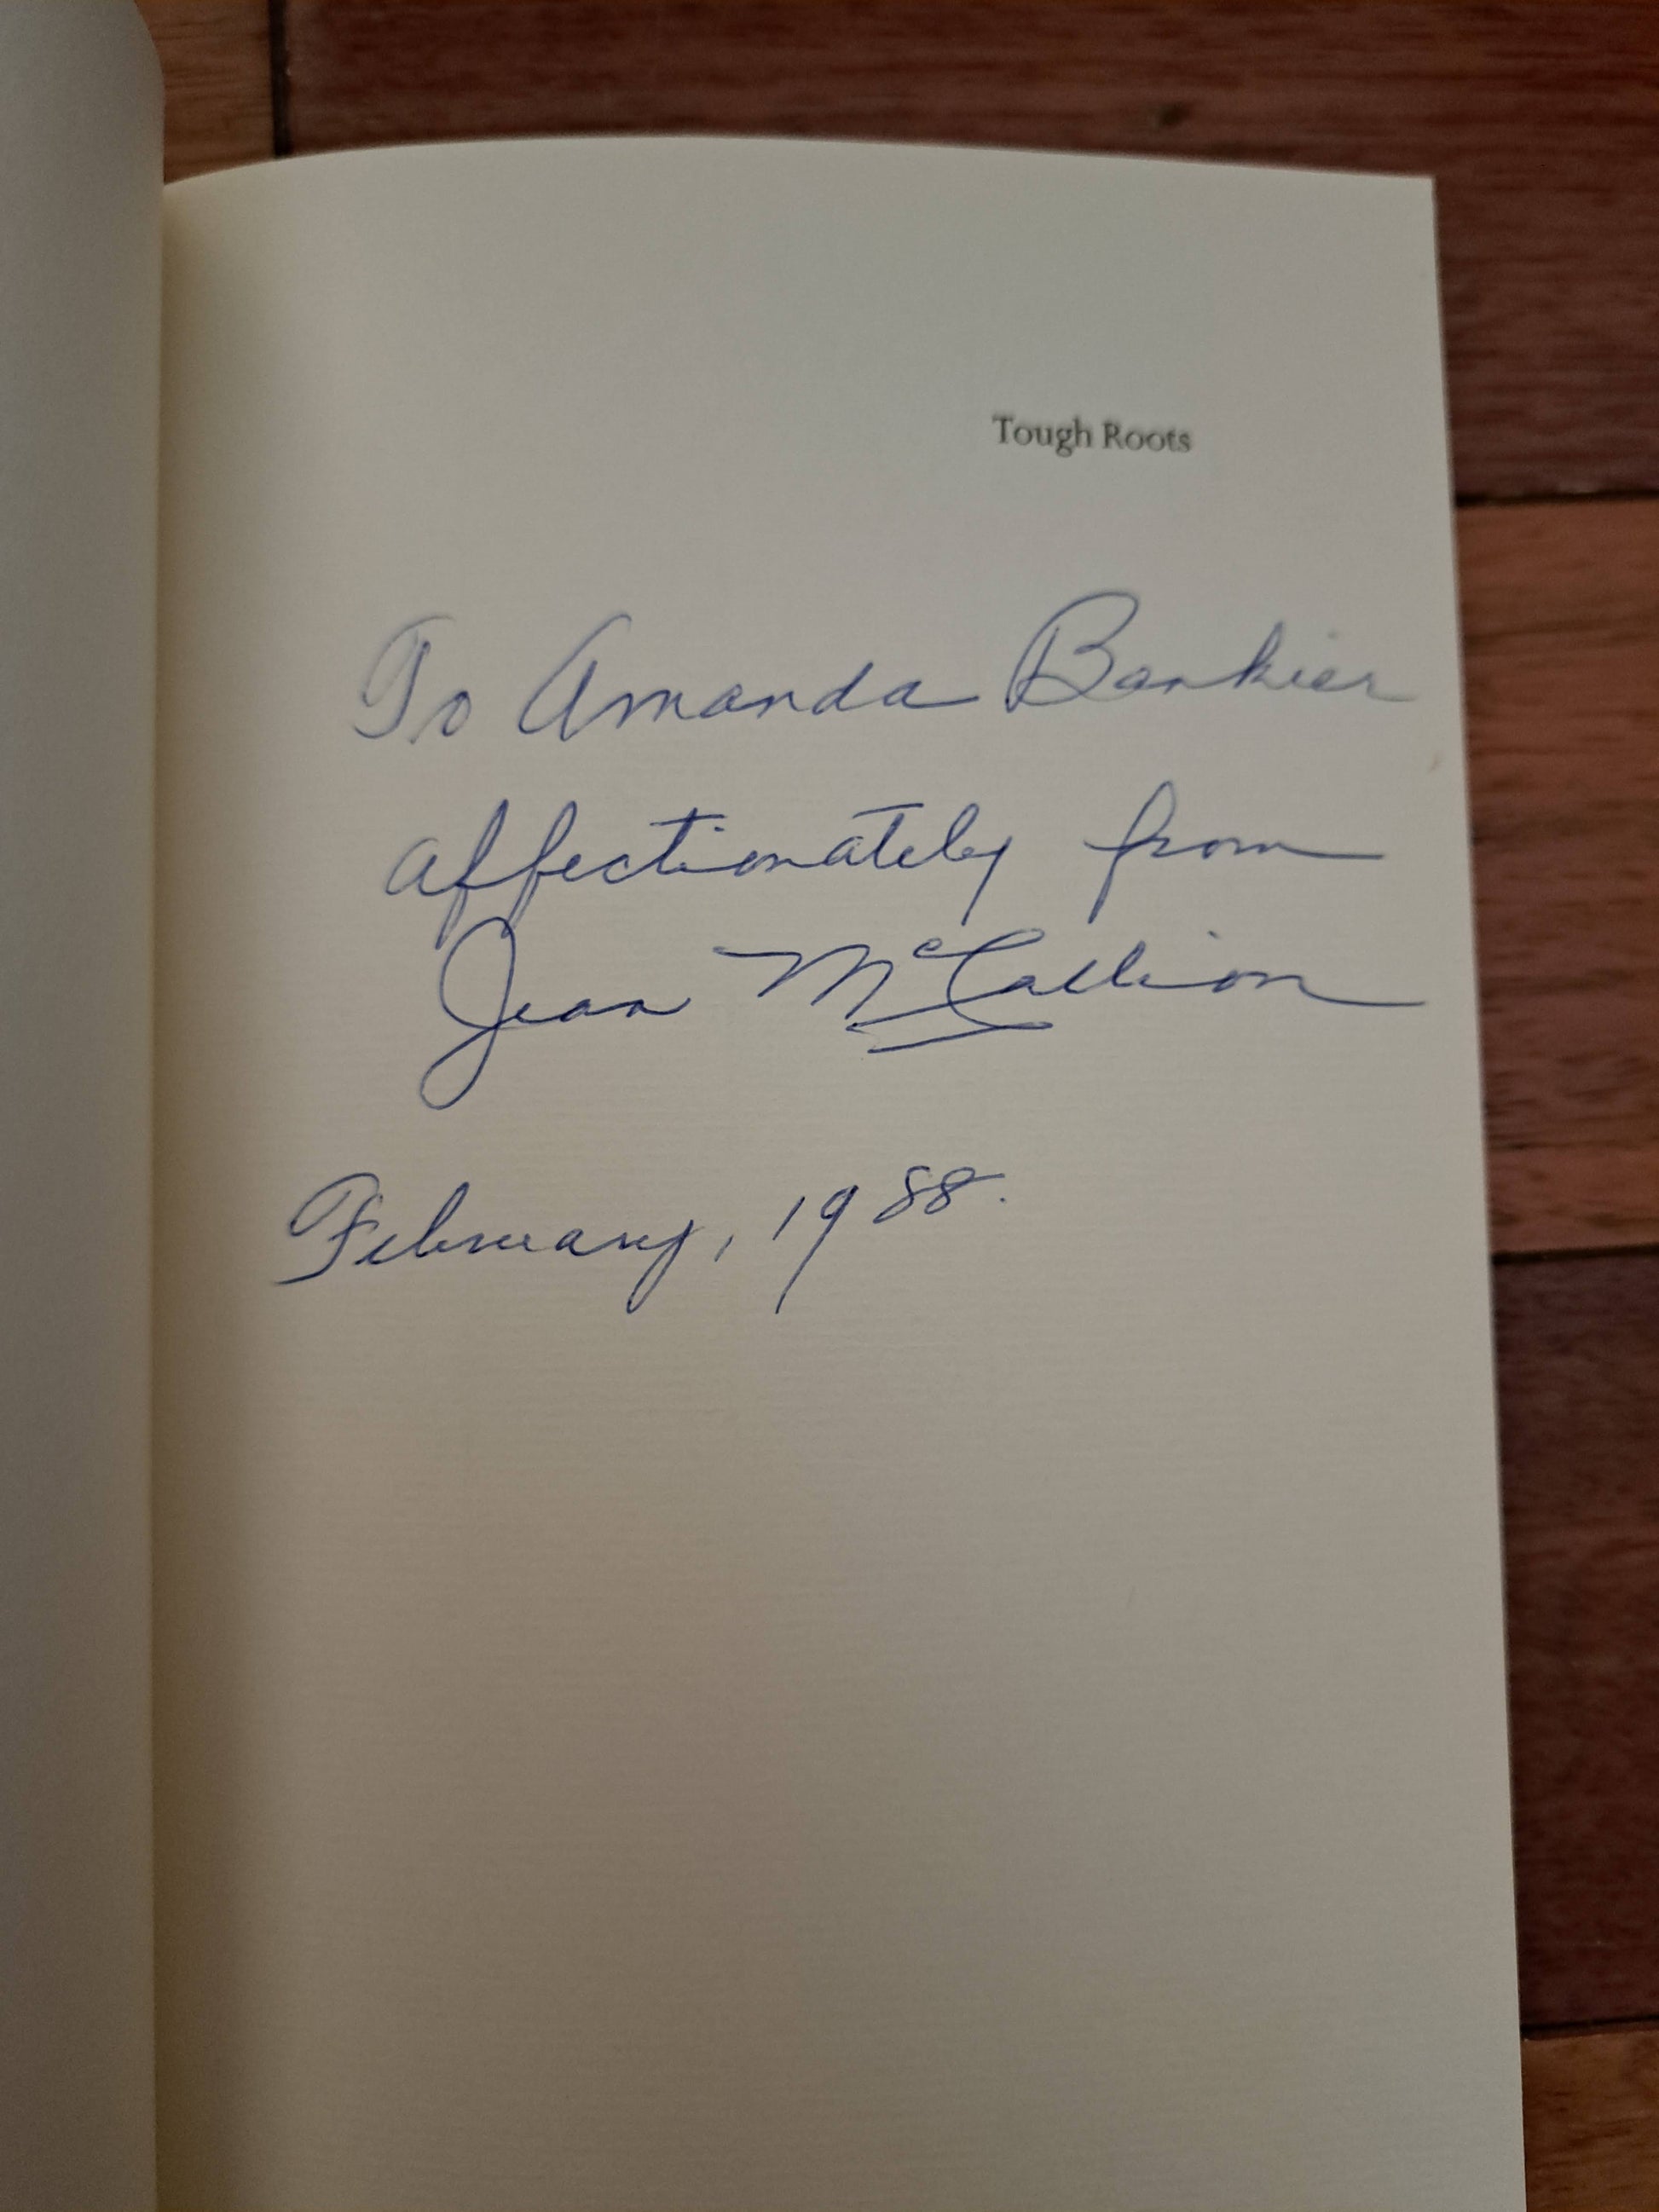 Tough Roots
To Amanda Bankier
affectionately from
Jean McCallion
February, 1988.